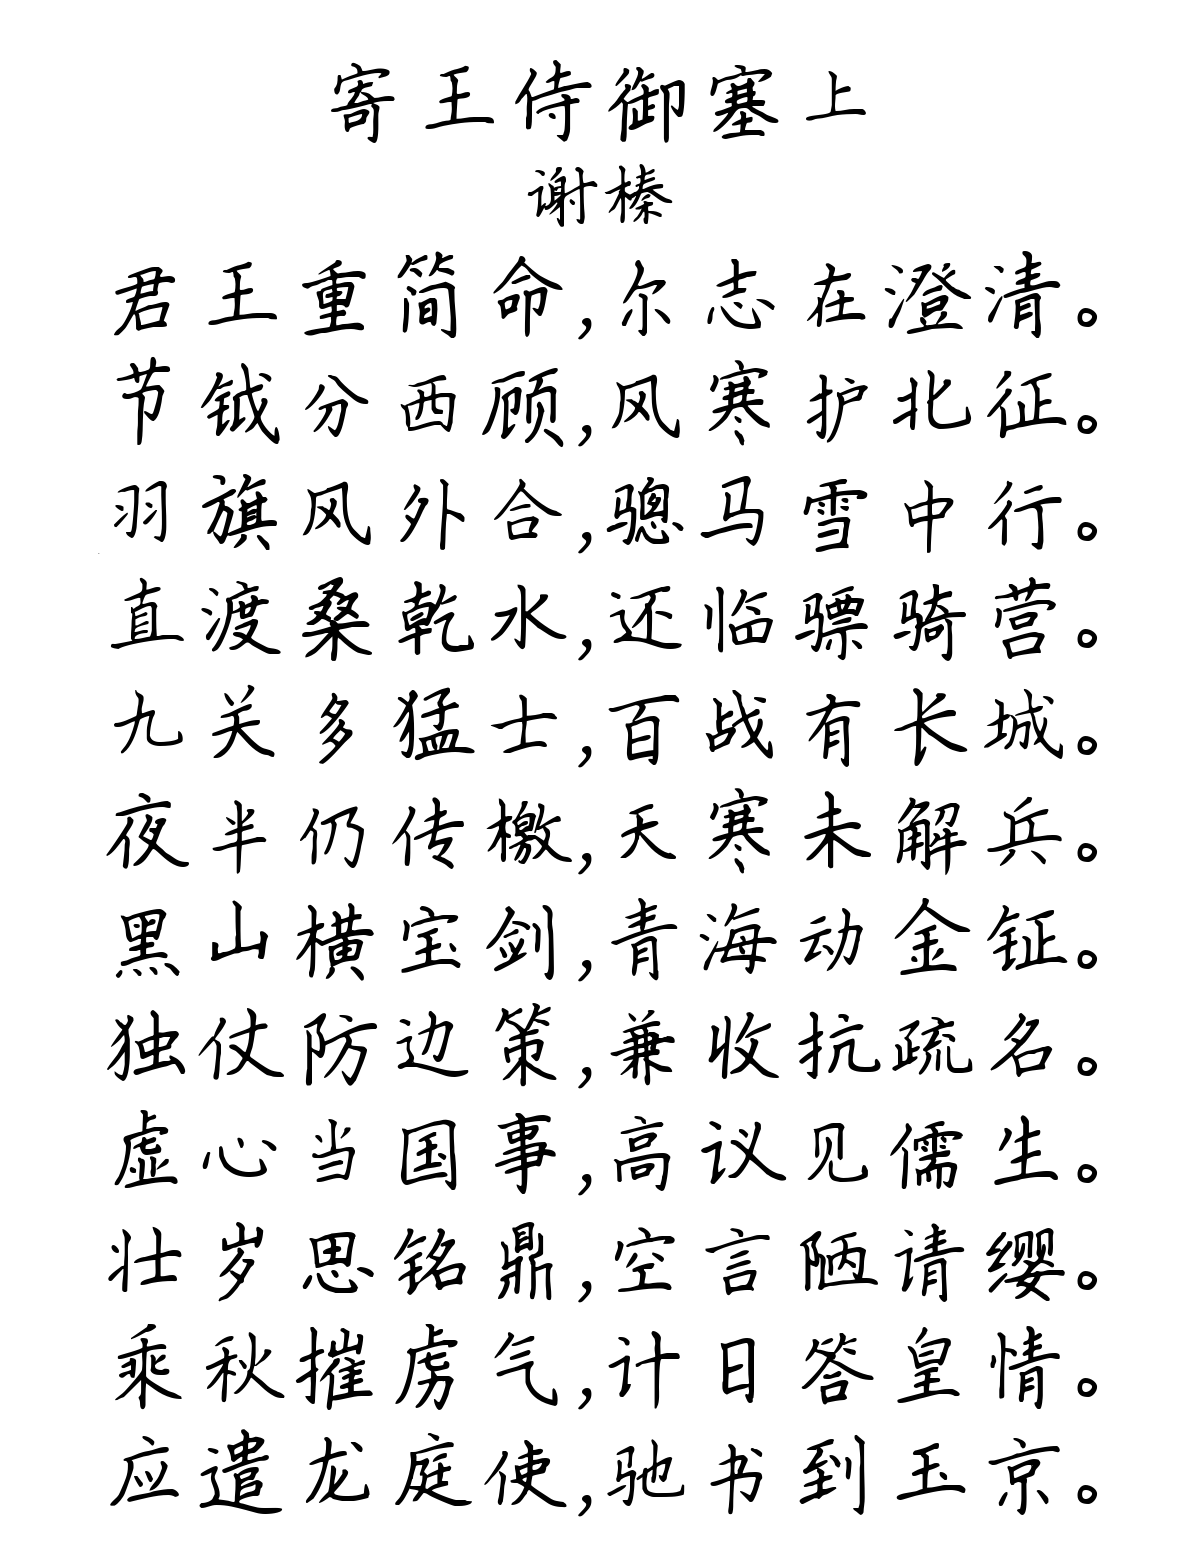 寄王侍御塞上
谢榛
君王重简命,尔志在澄清。
节钺分西顾,风寒护北征。
羽旗风外合,骢马雪中行。
直渡桑乾水,还临骠骑营。
九关多猛士,百战有长城。
夜半仍传檄,天寒未解兵。
黑山横宝剑,青海动金钲。
独仗防边策,兼收抗疏名。
虚心当国事,高议见儒生。
壮岁思铭鼎,空言陋请缨。
乘秋摧虏气,计日答皇情。
应遣龙庭使,驰书到玉京。